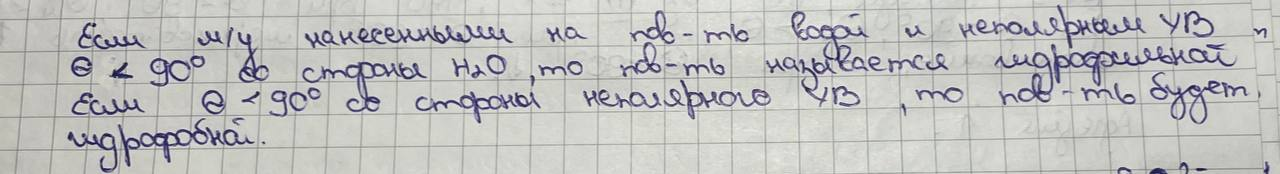 Если м/у нанесенными на пов-ть водой и неполярным УВ
θ < 90° со стороны H2O, то пов-ть называется гидрофильной
Если θ < 90° со стороны неполярного УВ, то пов-ть будет
гидрофобной.